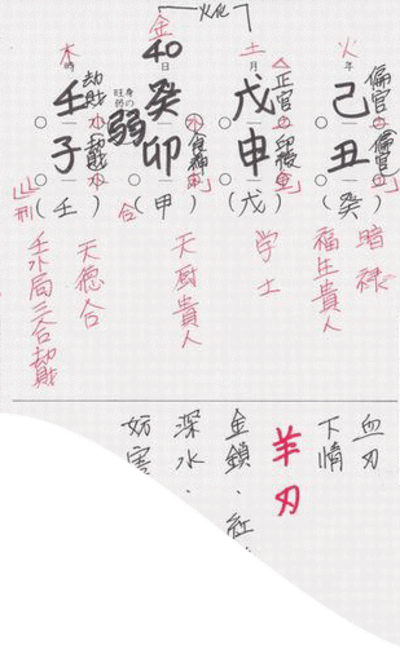 火化
火
年
偏官
己
偏官
丑
(癸)
暗禄
福生貴人
土
月
正官
戊
印綬
申
(戊)
学士
金
40
日
癸
身の
旺弱
弱
水
食神
卯
(甲)
合
天厨貴人
木
時
劫財
壬
水
劫財
水
子
(壬)
刑
天徳合
壬水局三合劫財
血刃
下情
羊刃
金鎖・紅
深水・
妨害